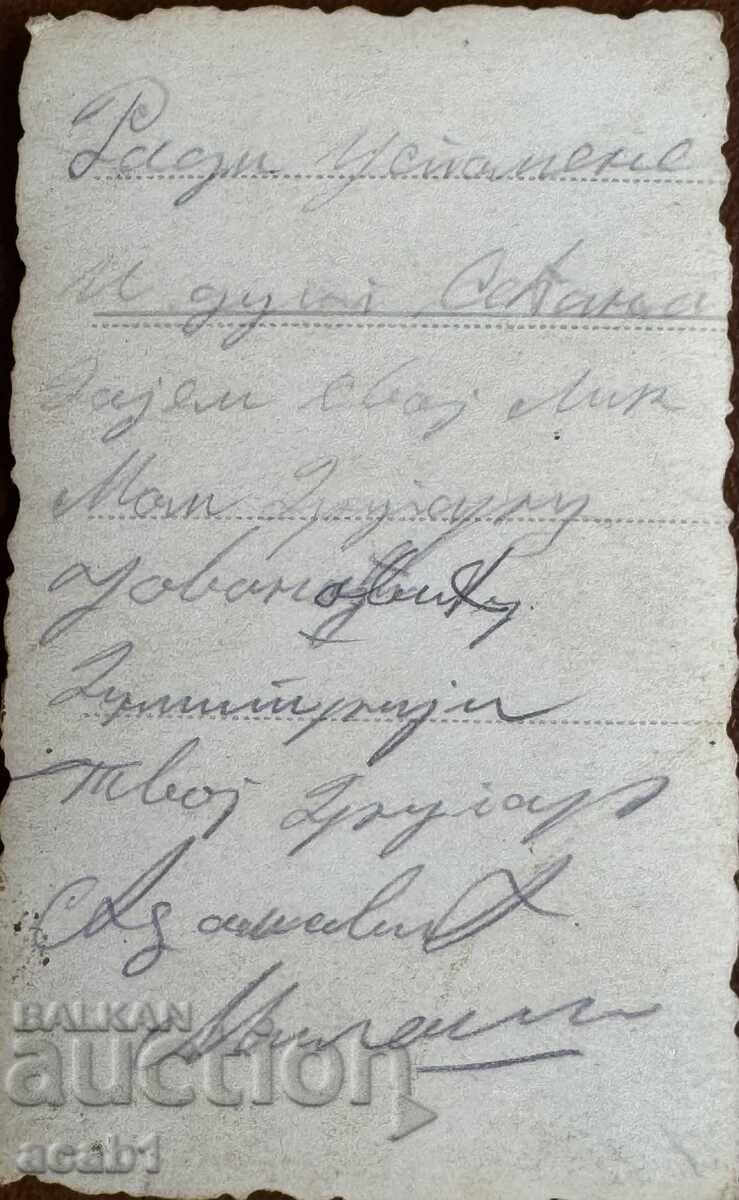 Ради Успомене
и дуга Сећања
Дајем свој Лик
Мом Другару
Јовановићу
Димитрији
твој Другар
Милош
BALKAN
auction
acab1